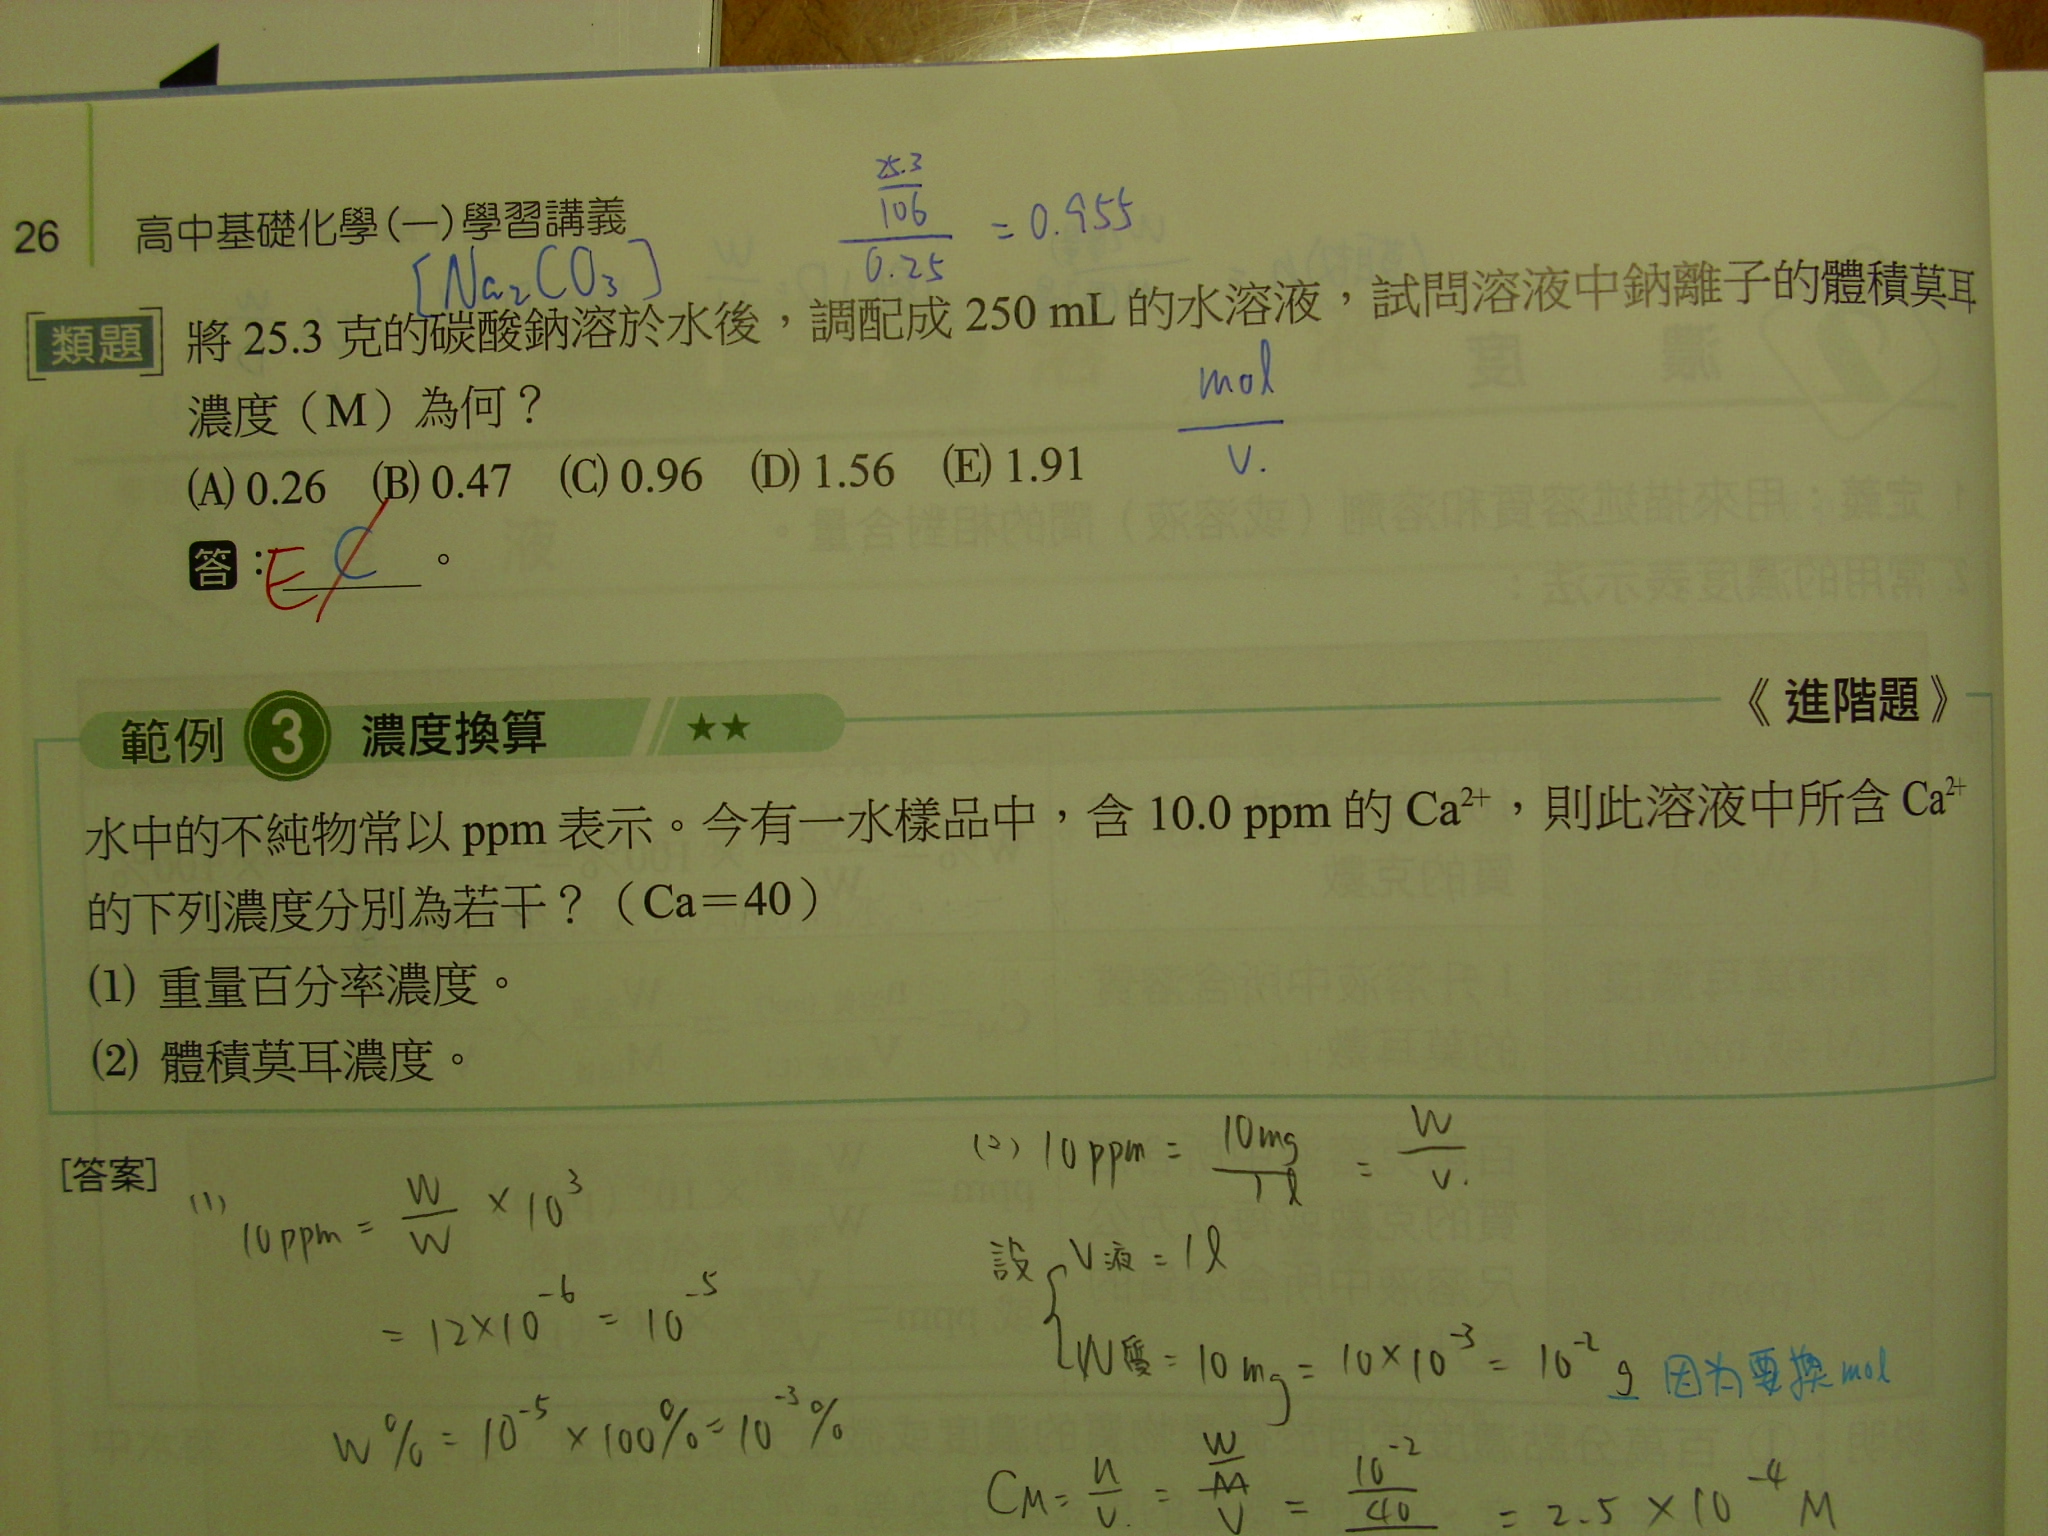 26
高中基礎化學(一)學習講義
25.3
106
0.25
= 0.955
[Na₂CO₃]
類題 將 25.3 克的碳酸鈉溶於水後，調配成 250 mL 的水溶液，試問溶液中鈉離子的體積莫耳
濃度（M）為何？
mol
V.
(A) 0.26 (B) 0.47 (C) 0.96 (D) 1.56 (E) 1.91
答：E C 。
《進階題》
範例 3 濃度換算 ★★
水中的不純物常以 ppm 表示。今有一水樣品中，含 10.0 ppm 的 Ca²⁺，則此溶液中所含 Ca²⁺
的下列濃度分別為若干？（Ca＝40）
(1) 重量百分率濃度。
(2) 體積莫耳濃度。
[答案]
(1) 10ppm = W/W × 10³
= 12×10⁻⁶ = 10⁻⁵
W% = 10⁻⁵ × 100% = 10⁻³%
(2) 10ppm = 10mg/1l = W/V.
設 V液 = 1l
W質 = 10mg = 10×10⁻³ = 10⁻² g 因为要換mol
CM = n/V. = W/M/V = 10⁻²/40 = 2.5 × 10⁻⁴ M